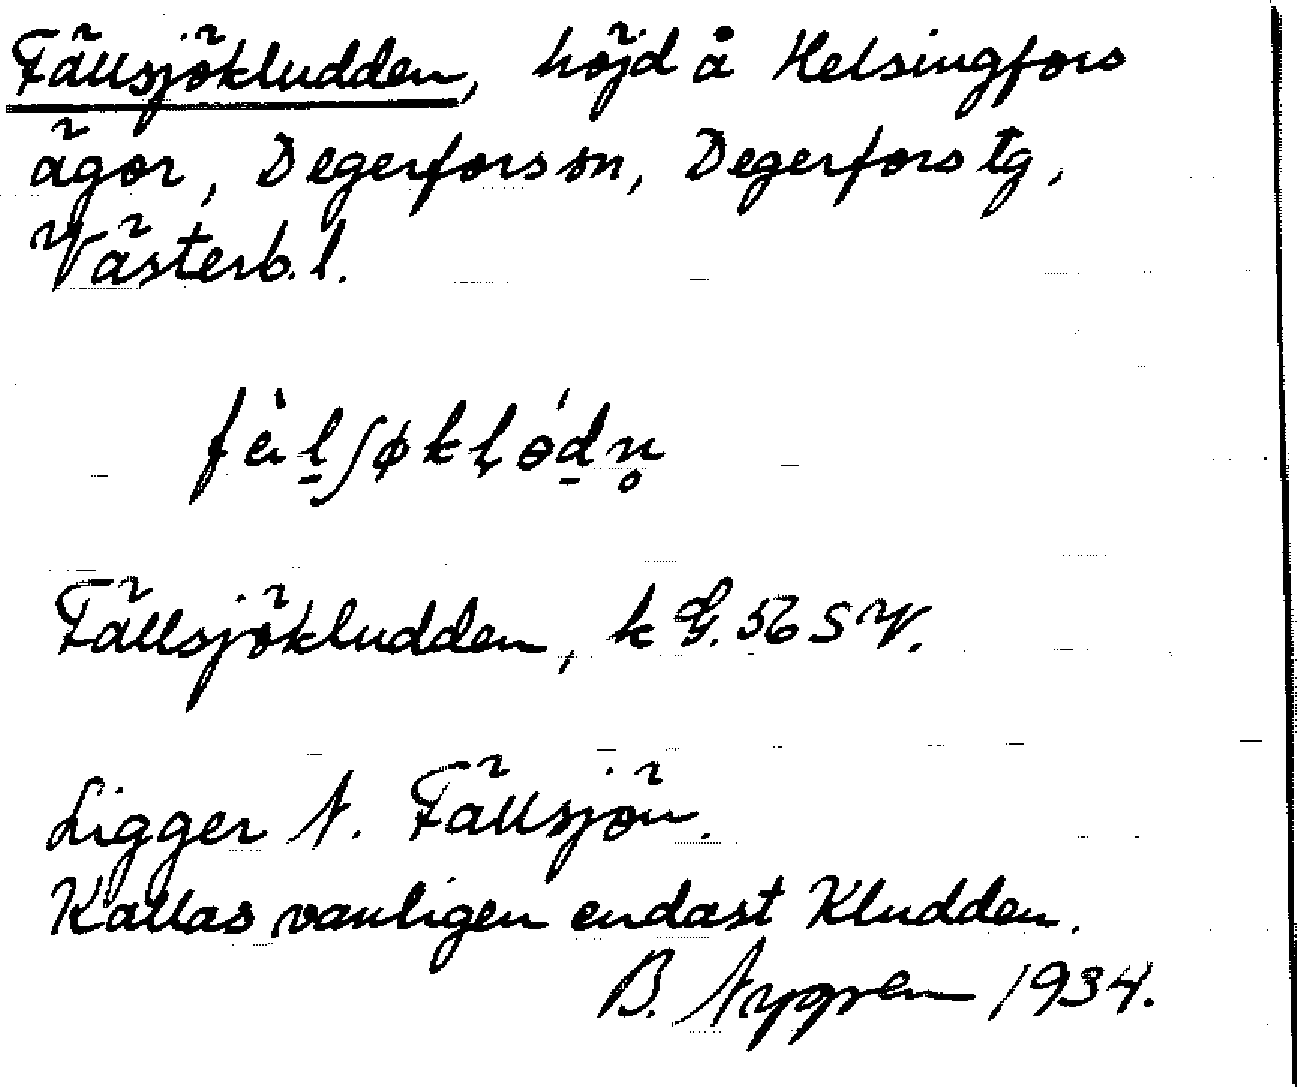 Fällsjökludden, höjd å Helsingfors
ägor, Degerfors sn, Degerfors tg,
Västerb. l.
Fällsjökludden, k G. 56 SV.
Ligger N. Fällsjön.
Kallas vanligen endast Kludden.
B. Nygren 1934.